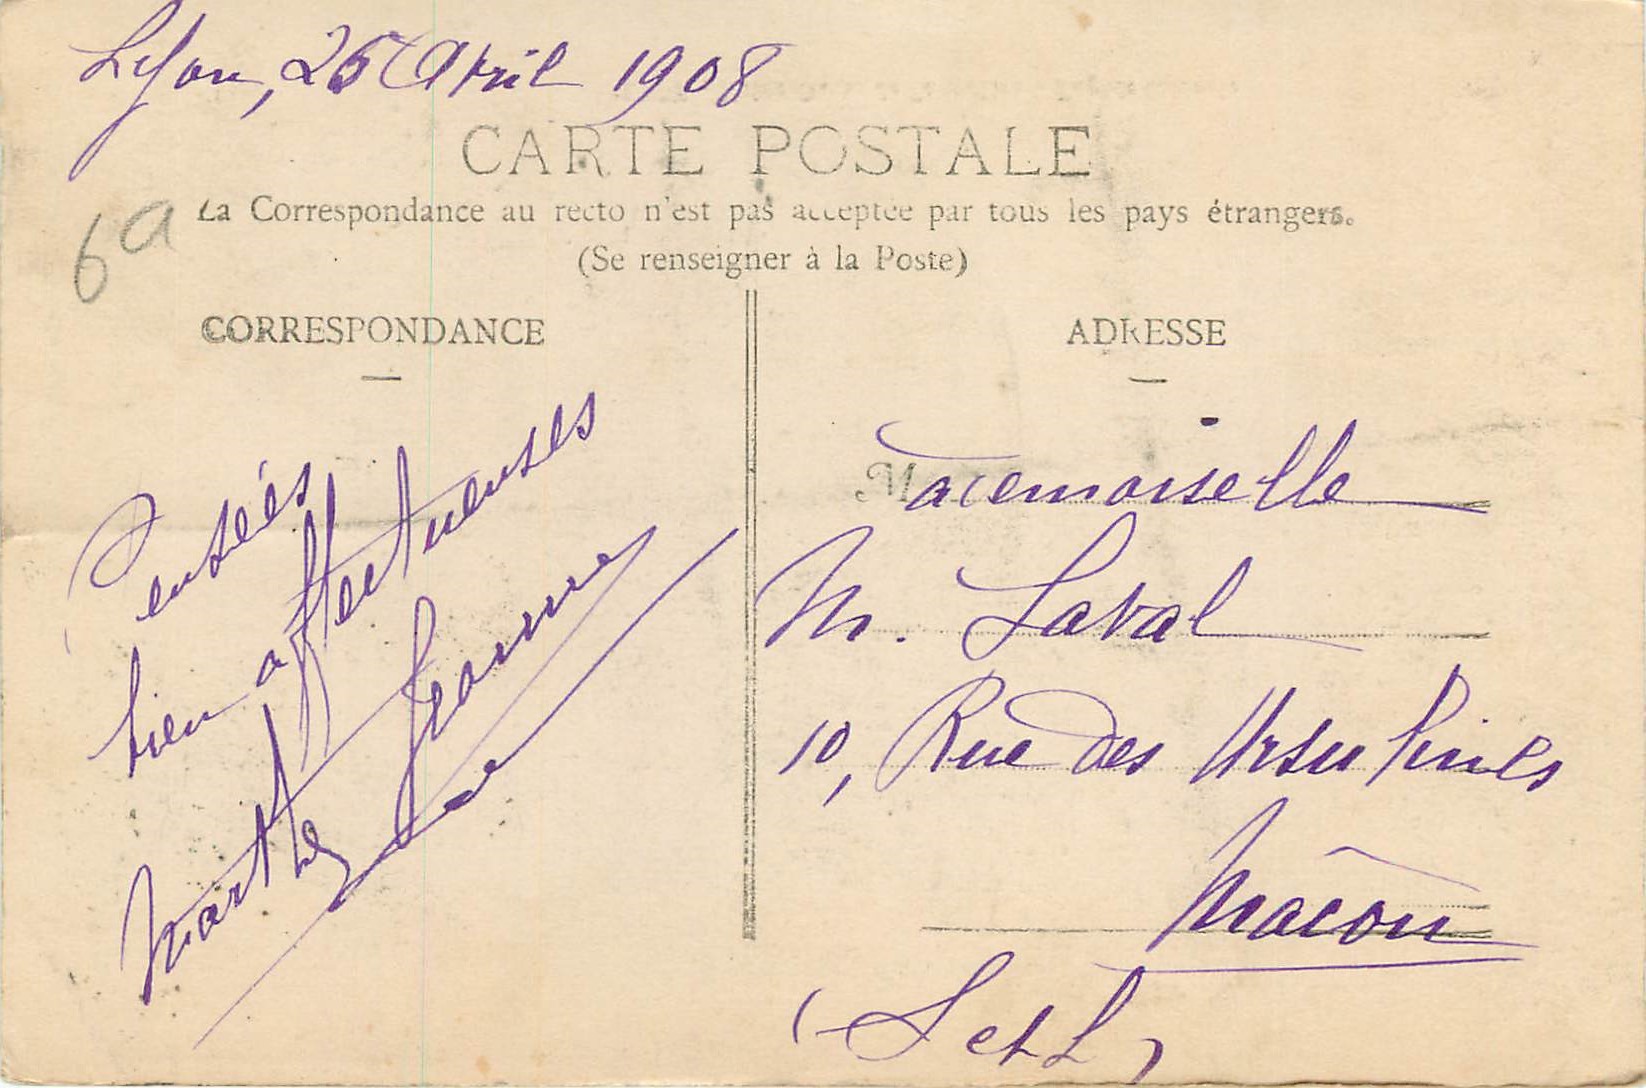 Lyon, 25 Avril 1908
CARTE POSTALE
La Correspondance au recto n'est pas acceptée par tous les pays étrangers.
(Se renseigner à la Poste)
6a
CORRESPONDANCE
Pensées
bien affectueuses
Marthe Jeanne
ADRESSE
M
Mademoiselle
M. Laval
10, Rue des Ursulines
Mâcon
(S et L)